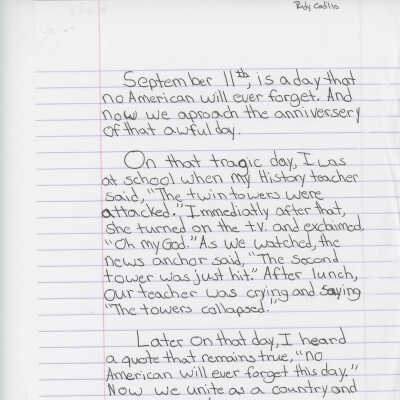 Rudy Cadillo
September 11th, is a day that
no American will ever forget. And
now we aproach the anniversery
of that awful day.
On that tragic day, I was
at school when my History teacher
said, "The twin towers were
attacked." Immediatly after that,
she turned on the t.v. and exclaimed
"Oh my God." As we watched, the
news anchor said, "The second
tower was just hit." After lunch,
our teacher was crying and saying
"The towers collapsed."
Later on that day, I heard
a quote that remains true, "no
American will ever forget this day."
Now we unite as a country and